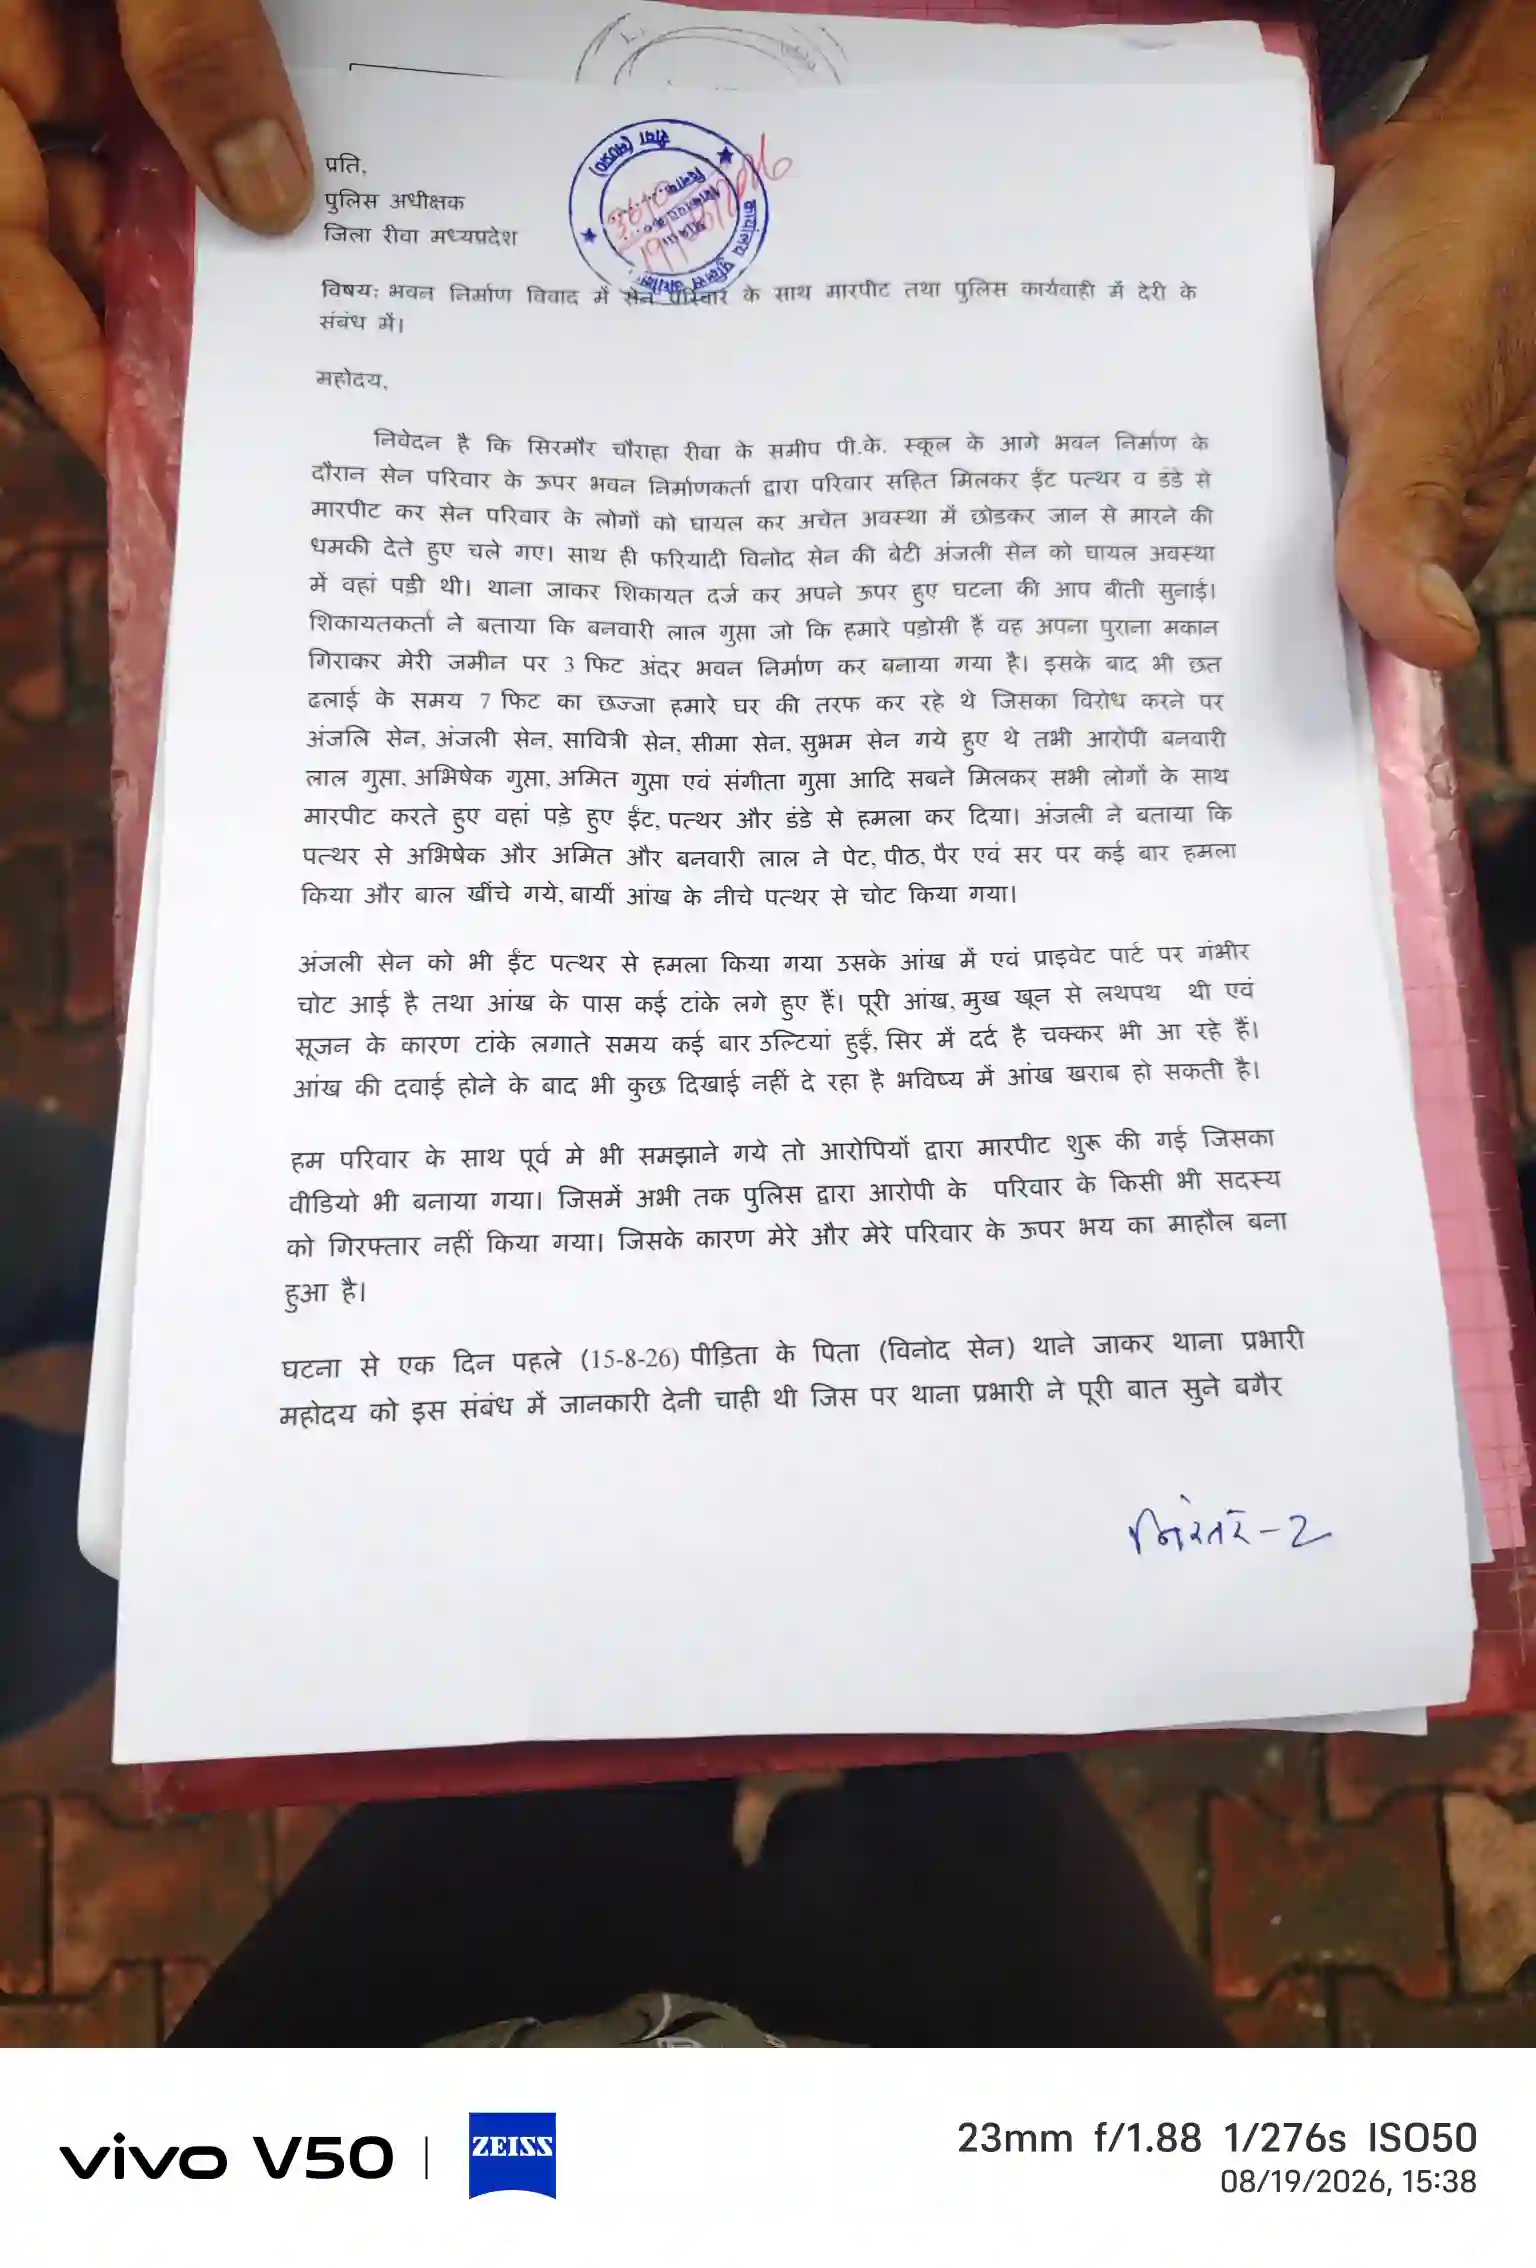 प्रति,
पुलिस अधीक्षक
जिला रीवा मध्यप्रदेश
विषय: भवन निर्माण विवाद में सेन परिवार के साथ मारपीट तथा पुलिस कार्यवाही में देरी के
संबंध में।
महोदय,
निवेदन है कि सिरमौर चौराहा रीवा के समीप पी.के. स्कूल के आगे भवन निर्माण के
दौरान सेन परिवार के ऊपर भवन निर्माणकर्ता द्वारा परिवार सहित मिलकर ईंट पत्थर व डंडे से
मारपीट कर सेन परिवार के लोगों को घायल कर अचेत अवस्था में छोडकर जान से मारने की
धमकी देते हुए चले गए। साथ ही फरियादी विनोद सेन की बेटी अंजली सेन को घायल अवस्था
में वहां पड़ी थी। थाना जाकर शिकायत दर्ज कर अपने ऊपर हुए घटना की आप बीती सुनाई।
शिकायतकर्ता ने बताया कि बनवारी लाल गुप्ता जो कि हमारे पड़ोसी हैं वह अपना पुराना मकान
गिराकर मेरी जमीन पर 3 फिट अंदर भवन निर्माण कर बनाया गया है। इसके बाद भी छत
ढलाई के समय 7 फिट का छज्जा हमारे घर की तरफ कर रहे थे जिसका विरोध करने पर
अंजलि सेन, अंजली सेन, सावित्री सेन, सीमा सेन, सुभम सेन गये हुए थे तभी आरोपी बनवारी
लाल गुप्ता, अभिषेक गुप्ता, अमित गुप्ता एवं संगीता गुप्ता आदि सबने मिलकर सभी लोगों के साथ
मारपीट करते हुए वहां पड़े हुए ईंट, पत्थर और डंडे से हमला कर दिया। अंजली ने बताया कि
पत्थर से अभिषेक और अमित और बनवारी लाल ने पेट, पीठ, पैर एवं सर पर कई बार हमला
किया और बाल खींचे गये, बायीं आंख के नीचे पत्थर से चोट किया गया।
अंजली सेन को भी ईंट पत्थर से हमला किया गया उसके आंख में एवं प्राइवेट पार्ट पर गंभीर
चोट आई है तथा आंख के पास कई टांके लगे हुए हैं। पूरी आंख, मुख खून से लथपथ थी एवं
सूजन के कारण टांके लगाते समय कई बार उल्टियां हुईं, सिर में दर्द है चक्कर भी आ रहे हैं।
आंख की दवाई होने के बाद भी कुछ दिखाई नहीं दे रहा है भविष्य में आंख खराब हो सकती है।
हम परिवार के साथ पूर्व मे भी समझाने गये तो आरोपियों द्वारा मारपीट शुरू की गई जिसका
वीडियो भी बनाया गया। जिसमें अभी तक पुलिस द्वारा आरोपी के परिवार के किसी भी सदस्य
को गिरफ्तार नहीं किया गया। जिसके कारण मेरे और मेरे परिवार के ऊपर भय का माहौल बना
हुआ है।
घटना से एक दिन पहले (15-8-26) पीड़िता के पिता (विनोद सेन) थाने जाकर थाना प्रभारी
महोदय को इस संबंध में जानकारी देनी चाही थी जिस पर थाना प्रभारी ने पूरी बात सुने बगैर
निरंतर - 2
vivo V50 | ZEISS
23mm f/1.88 1/276s ISO50
08/19/2026, 15:38